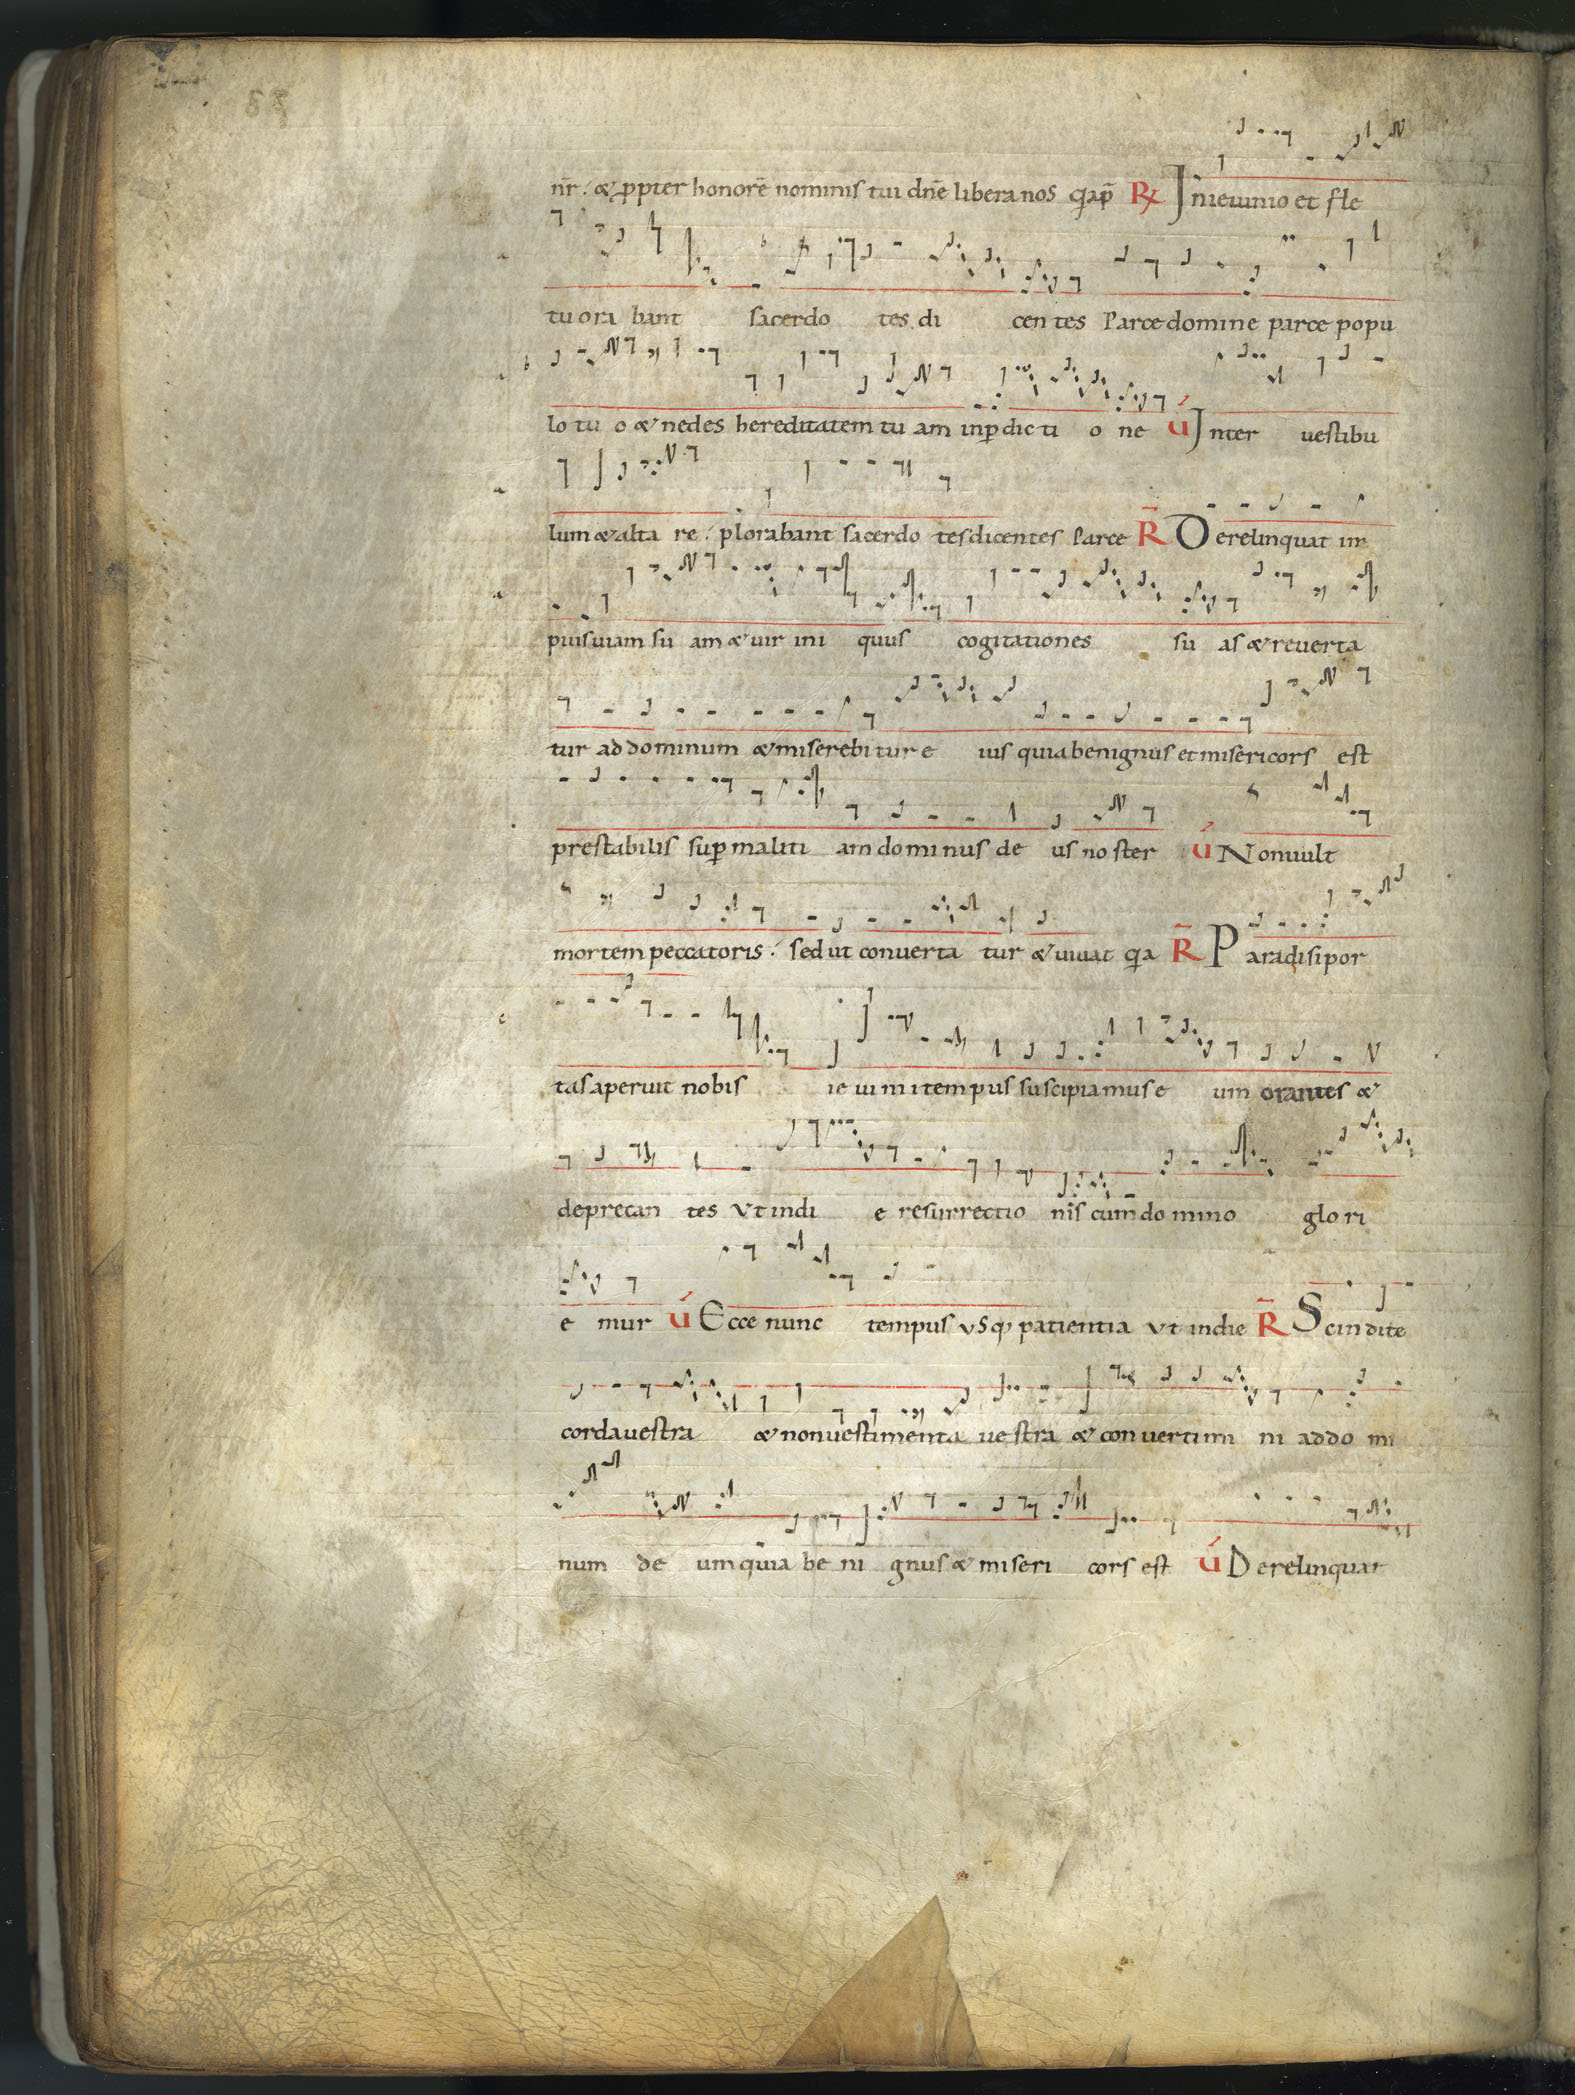 nr̄. & ꝓpter honorē nominis tui dn̄e libera nos q̄ ap̄ R̷ In ieiunio et fle
tu ora bant sacerdo tes di cen tes Parce domine parce popu
lo tu o & ne des hereditatem tu am in ꝑdicti o ne V́ Inter vestibu
lum & alta re. plorabant sacerdo tes dicentes Parce R̄ Derelinquat im
pius viam su am & vir ini quus cogitationes su as & reverta
tur ad dominum & miserebitur e ius quia benignus et misericors est
prestabilis suꝑ maliti am dominus de us noster V́ Non vult
mortem peccatoris. sed ut converta tur & vivat q̄a R̄ Paradisi por
tas aperuit nobis ie iu ni i tempus suscipiamus e um orantes &
deprecan tes Vt in di e resurrectio nis cum domino glori
e mur V́ Ecce nunc tempus Vsq; patientia Vt in die R̄ Scindite
corda vestra & non vestimenta ve stra & con vertimi ni ad do mi
num de um quia be ni gnus & miseri cors est V́ Derelinquat